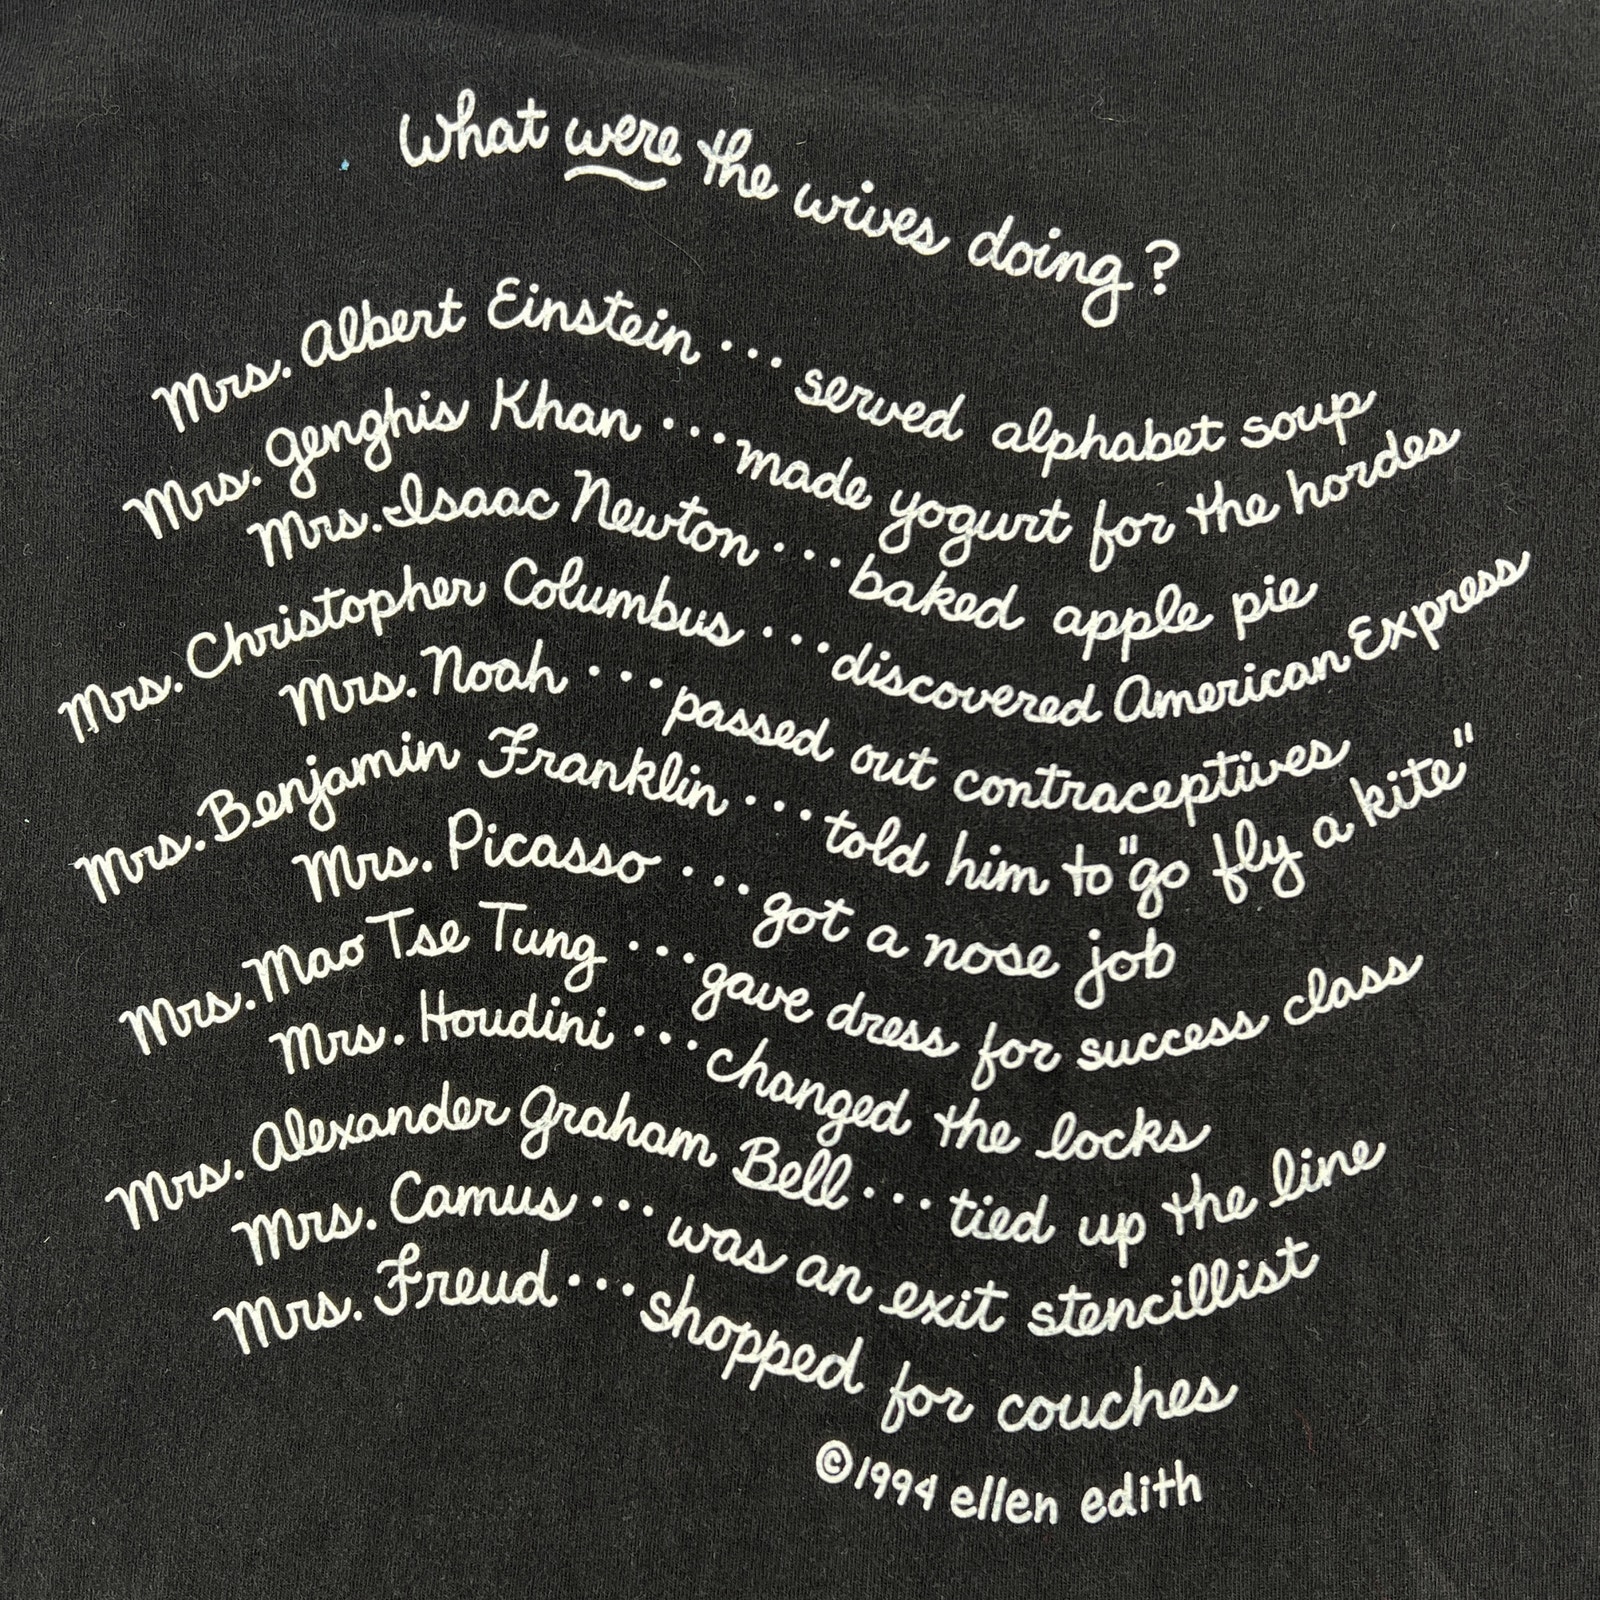 What were the wives doing?
Mrs. Albert Einstein...served alphabet soup
Mrs. Genghis Khan...made yogurt for the hordes
Mrs. Isaac Newton...baked apple pie
Mrs. Christopher Columbus...discovered American Express
Mrs. Noah...passed out contraceptives
Mrs. Benjamin Franklin...told him to "go fly a kite"
Mrs. Picasso...got a nose job
Mrs. Mao Tse Tung...gave dress for success class
Mrs. Houdini...changed the locks
Mrs. Alexander Graham Bell...tied up the line
Mrs. Camus...was an exit stencillist
Mrs. Freud...shopped for couches
©1994 ellen edith